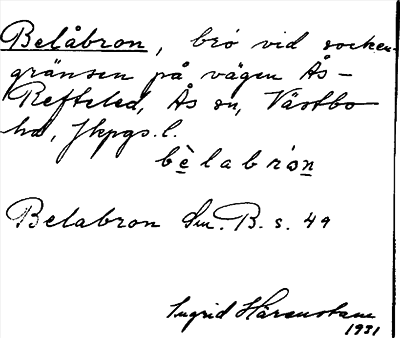 Belåbron, bro vid socken-
gränsen på vägen Ås -
Refteled, Ås sn, Västbo
hd, Jkpgs. l.
bèlabrón
Belabron Sm. B. s. 49
Ingrid Härenstam
1931